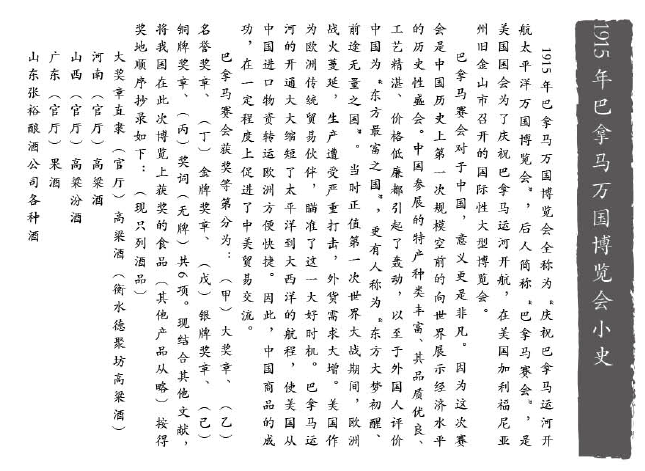 1915年巴拿马万国博览会小史
1915年巴拿马万国博览会全称为“庆祝巴拿马运河开
航太平洋万国博览会”，后人简称“巴拿马赛会”，是
美国国会为了庆祝巴拿马运河开航，在美国加利福尼亚
州旧金山市召开的国际性大型博览会。
巴拿马赛会对于中国，意义更是非凡。因为这次赛
会是中国历史上第一次规模空前的向世界展示经济水平
的历史性盛会。中国参展的特产种类丰富、其品质优良、
工艺精湛、价格低廉都引起了轰动，以至于外国人评价
中国为“东方最富之国”，更有人称为“东方大梦初醒、
前途无量之国”。当时正值第一次世界大战期间，欧洲
战火蔓延，生产遭受严重打击，外货需求大增。美国作
为欧洲传统贸易伙伴，瞄准了这一大好时机。巴拿马运
河的开通大大缩短了太平洋到大西洋的航程，使美国从
中国进口物资转运欧洲方便快捷。因此，中国商品的成
功，在一定程度上促进了中美贸易交流。
巴拿马赛会获奖等第分为：（甲）大奖章、（乙）
名誉奖章、（丁）金牌奖章、（戊）银牌奖章、（己）
铜牌奖章、（丙）奖词（无牌）共6项。现结合其他文献，
将我国在此次博览上获奖的食品（其他产品从略）按得
奖地顺序抄录如下：（现只列酒品）
大奖章直隶（官厅）高粱酒（衡水德聚坊高粱酒）
河南（官厅）高粱酒
山西（官厅）高粱汾酒
广东（官厅）果酒
山东张裕酿酒公司各种酒